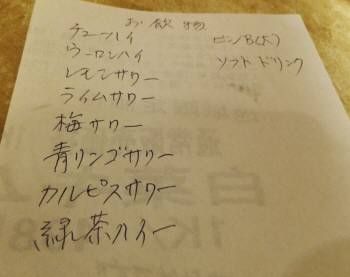 お飲物
チューハイ
ウーロンハイ
レモンサワー
ライムサワー
梅サワー
青リンゴサワー
カルピスサワー
緑茶ハイー
ビンB(大)
ソフトドリンク